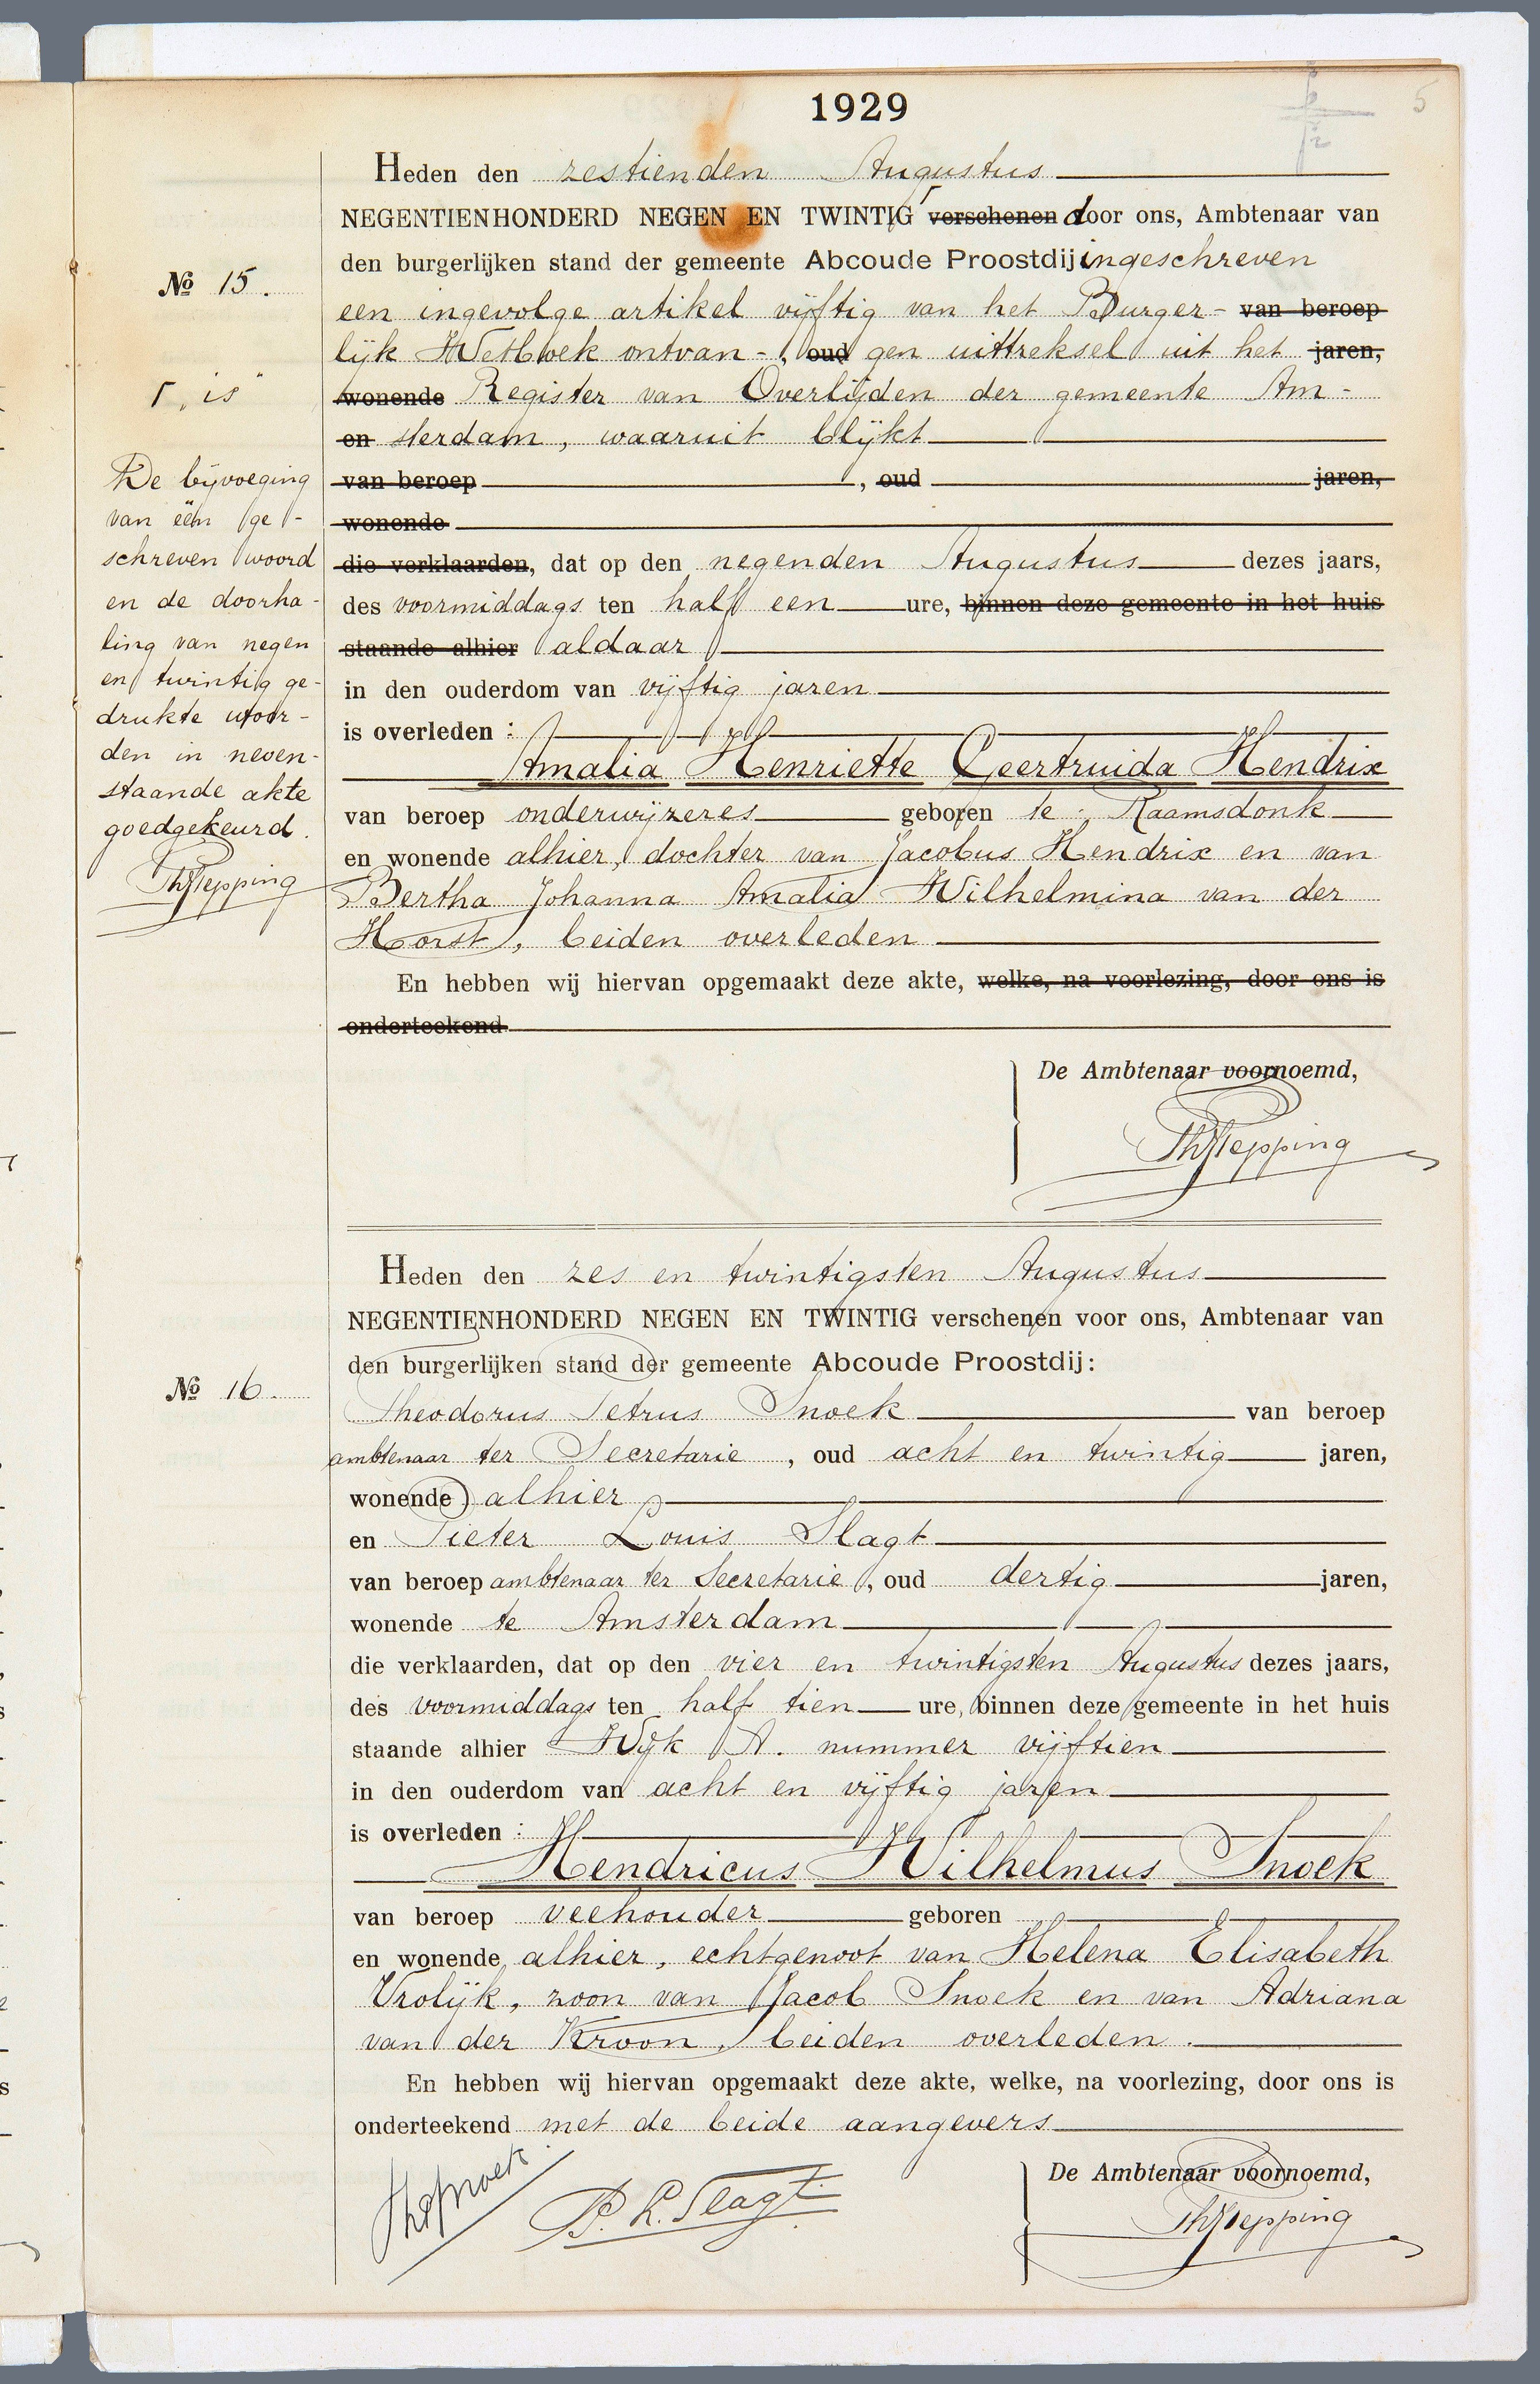 1929
5
Heden den zestienden Augustus
NEGENTIENHONDERD NEGEN EN TWINTIG ⌈ verschenen door ons, Ambtenaar van
den burgerlijken stand der gemeente Abcoude Proostdij ingeschreven
een ingevolge artikel vijftig van het Burger- van beroep
lijk Wetboek ontvan-, oud gen uittreksel uit het jaren,
wonende Register van Overlijden der gemeente Am-
en sterdam, waaruit blijkt
van beroep , oud jaren,
wonende
die verklaarden, dat op den negenden Augustus dezes jaars,
des voormiddags ten half een ure, binnen deze gemeente in het huis
staande alhier aldaar
in den ouderdom van vijftig jaren
is overleden :
Amalia Henriette Geertruida Hendrix
van beroep onderwijzeres geboren te Raamsdonk
en wonende alhier, dochter van Jacobus Hendrix en van
Bertha Johanna Amalia Wilhelmina van der
Horst, beiden overleden
En hebben wij hiervan opgemaakt deze akte, welke, na voorlezing, door ons is
onderteekend
De Ambtenaar voornoemd,
No 15.
⌈ „is"
De bijvoeging
van één ge-
schreven woord
en de doorha-
ling van negen
en twintig ge-
drukte woor-
den in neven-
staande akte
goedgekeurd.
Heden den zes en twintigsten Augustus
NEGENTIENHONDERD NEGEN EN TWINTIG verschenen voor ons, Ambtenaar van
den burgerlijken stand der gemeente Abcoude Proostdij:
No 16.
Theodorus Petrus Snoek van beroep
ambtenaar ter Secretarie , oud acht en twintig jaren,
wonende alhier
en Pieter Louis Slagt
van beroep ambtenaar ter Secretarie, oud dertig jaren,
wonende te Amsterdam
die verklaarden, dat op den vier en twintigsten Augustus dezes jaars,
des voormiddags ten half tien ure, binnen deze gemeente in het huis
staande alhier Wijk A. nummer vijftien
in den ouderdom van acht en vijftig jaren
is overleden :
Hendricus Wilhelmus Snoek
van beroep veehouder geboren
en wonende alhier, echtgenoot van Helena Elisabeth
Vrolijk, zoon van Jacob Snoek en van Adriana
van der Kroon, beiden overleden.
En hebben wij hiervan opgemaakt deze akte, welke, na voorlezing, door ons is
onderteekend met de beide aangevers
De Ambtenaar voornoemd,
P. L. Slagt.